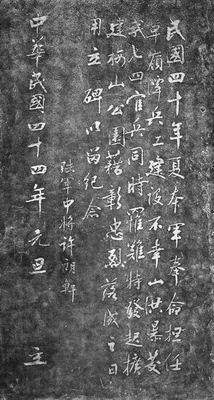 民國四十年夏本軍奉命担任
草嶺潭兵工建設不幸山洪暴發
我七四官兵同時罹難特發起擴
建梅山公園藉彰忠烈落成之日
用立碑以留紀念
陸軍中將許朗軒
中華民國四十四年元旦 立